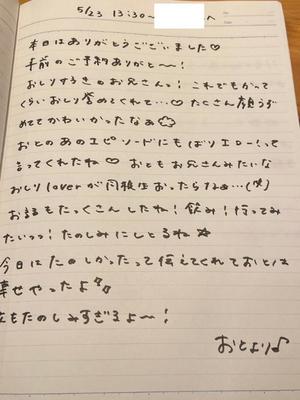 5/23 13:30〜 へ
本日はありがとうございました♡
午前のご予約ありがと〜!
おしりすきのお兄さんっ! これでもかって
くらいおしり誉めてくれて…♡ たくさん顔うず
めててかわいかったなぁ
おとのあのエピソードにもばりエロ〜!って
言ってくれたね♡ おともお兄さんみたいな
おしりloverが同級生おったらなぁ…
お話もたっくさんしたね! 飲み! 行ってみ
たいっっ! たのしみにしとるね☆
今日はたのしかったって伝えてくれておとは
幸せやったよ
次もたのしみすぎるよ〜!
おとより♪